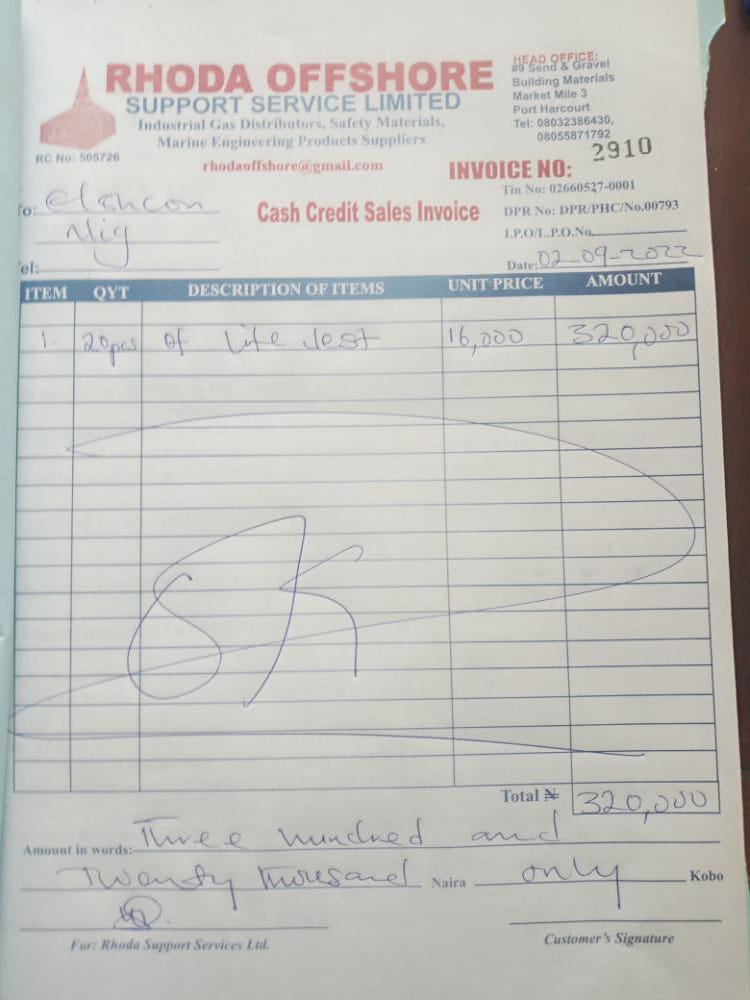 RHODA OFFSHORE
SUPPORT SERVICE LIMITED
Industrial Gas Distributors, Safety Materials,
Marine Engineering Products Suppliers
RC No: 505726
rhodaoffshore@gmail.com
HEAD OFFICE:
#9 Send & Gravel
Building Materials
Market Mile 3
Port Harcourt
Tel: 08032386430,
08055871792
INVOICE NO: 2910
Tin No: 02660527-0001
DPR No: DPR/PHC/No.00793
I.P.O/L.P.O.No.
Date: 02-09-2022
Cash Credit Sales Invoice
o:
Nig
el:
ITEM QYT DESCRIPTION OF ITEMS UNIT PRICE AMOUNT
1. 20pcs of Life Jest 16,000 320,000
Total ₦ 320,000
Amount in words: Three hundred and
Twandy thoresand Naira only Kobo
For: Rhoda Support Services Ltd.
Customer's Signature